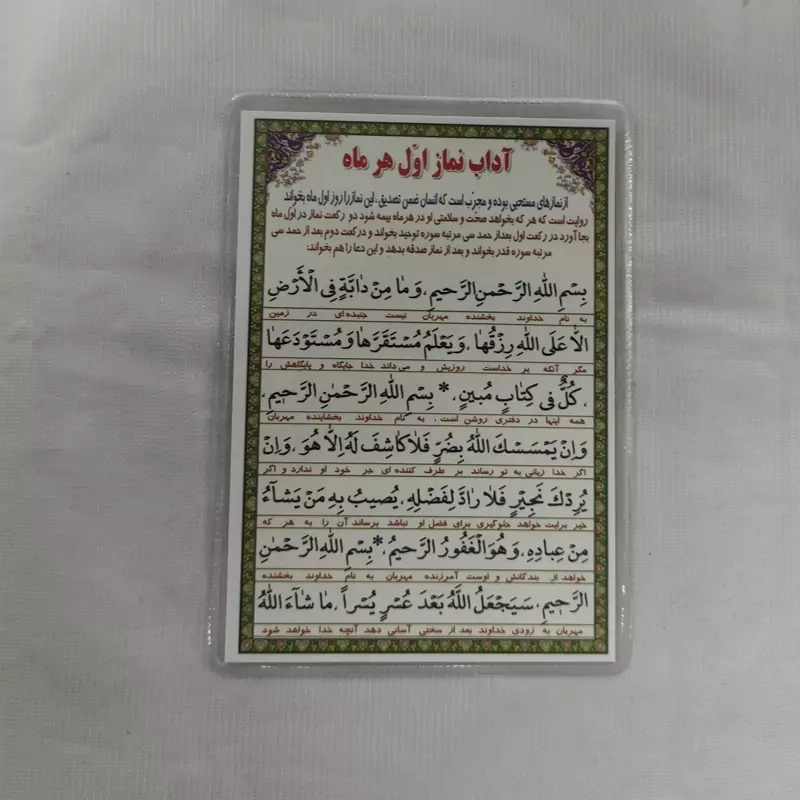 آداب نماز اوّل هر ماه
از نمازهای مستحبی بوده و مجرّب است که انسان ضمن تصدیق، این نماز را روز اول ماه بخواند
روایت است که هر که بخواهد صحّت و سلامتی او در هر ماه بیمه شود دو رکعت نماز در اوّل ماه
بجا آورد در رکعت اول بعد از حمد سی مرتبه سوره توحید بخواند و در رکعت دوم بعد از حمد سی
مرتبه سوره قدر بخواند و بعد از نماز صدقه بدهد و این دعا را هم بخواند:
بِسْمِ اللهِ الرَّحْمنِ الرَّحیمِ، وَ مٰا مِنْ دٰابَّةٍ فِی الْأَرْضِ
به نام خداوند بخشنده مهربان نیست جنبده‌ای در زمین
اِلاّٰ عَلَی اللهِ رِزْقُهٰا، وَ یَعْلَمُ مُسْتَقَرَّهٰا وَ مُسْتَوْدَعَهٰا
مگر آنکه بر خداست روزیش و می‌داند خدا جایگاه و پایگاهش را
، کُلٌّ فی کِتٰابٍ مُبینٍ، * بِسْمِ اللهِ الرَّحْمٰنِ الرَّحیمِ،
همه اینها در دفتری روشن است، به نام خداوند بخشاینده مهربان
وَ اِنْ یَمْسَسْكَ اللهُ بِضُرٍّ فَلاٰ کٰاشِفَ لَهُ اِلاّٰ هُوَ، وَ اِنْ
اگر خدا زیانی به تو رساند بر طرف کننده ای جر خود او ندارد و اگر
یُرِدْكَ بَخِیْرٍ فَلاٰ رٰادَّ لِفَضْلِهِ، یُصیبُ بِهِ مَنْ یَشٰآءُ
خیر برایت خواهد جلوگیری برای فضل او نباشد برساند آن را به هر که
مِنْ عِبٰادِهِ، وَ هُوَ الْغَفُورُ الرَّحیمُ،* بِسْمِ اللهِ الرَّحْمٰنِ
خواهد از بندگانش و اوست آمرزنده مهربان به نام خداوند بخشنده
الرَّحیمِ، سَیَجْعَلُ اللَّهُ بَعْدَ عُسْرٍ یُسْراً، مٰا شٰآءَ اللهُ
مهربان به زودی خداوند بعد از سختی آسانی دهد آنچه خدا خواهد شود